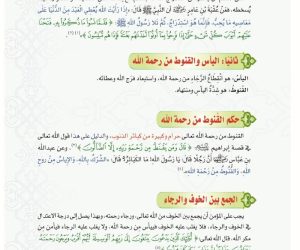 يسخطه، فعن عقبة بن عامر ﷺ أن النبي ﷺ قال: «إذا رأيت الله يعطي العبد من الدنيا على
معاصيه ما يحب، فإنما هو استدراج، ثم تلا رسول الله ﷺ: ﴿فَلَمَّا نَسُوا مَا ذُكِّرُوا بِهِ فَتَحْنَا
عَلَيْهِمْ أَبْوَابَ كُلِّ شَيْءٍ حَتَّى إِذَا فَرِحُوا بِمَا أُوتُوا أَخَذْنَاهُم بَغْتَةً فَإِذَا هُم مُّبْلِسُونَ﴾
ثانيا: اليأس والقنوط من رحمة الله
اليأس: هو انقطاع الرجاء من رحمة الله، واستبعاد فرج الله وعطائه.
القنوط: هو شدة اليأس ومنتهاه.
حكم القنوط من رحمة الله
القنوط من رحمة الله تعالى حرام وكبيرة من كبائر الذنوب، والدليل على هذا قول الله تعالى
في قصة إبراهيم الضَّالُّونَ﴾ وعن عبدالله
بن عباس أن رجلا قال: يا رسول الله! ما الكبائر؟ قال: «الشرك بالله، والإياس من روح
الله، والقنوط من رحمة الله».
الجمع بين الخوف والرجاء
يجب على المؤمن أن يجمع بين الخوف من الله تعالى، ورجاء رحمته، وبهذا يصل إلى درجة الاعتدال
في الخوف والرجاء، فلا يغلب عليه الخوف فييأس من رحمة الله، ولا يغلب عليه الرجاء فيأمن من
مكر الله، قال الله تعالى: ﴿أُولَئِكَ الَّذِينَ يَدْعُونَ يَبْتَغُونَ إِلَى رَبِّهِمُ الْوَسِيلَةَ أَيُّهُمْ أَقْرَبُ وَيَرْجُونَ رَحْمَتَهُ